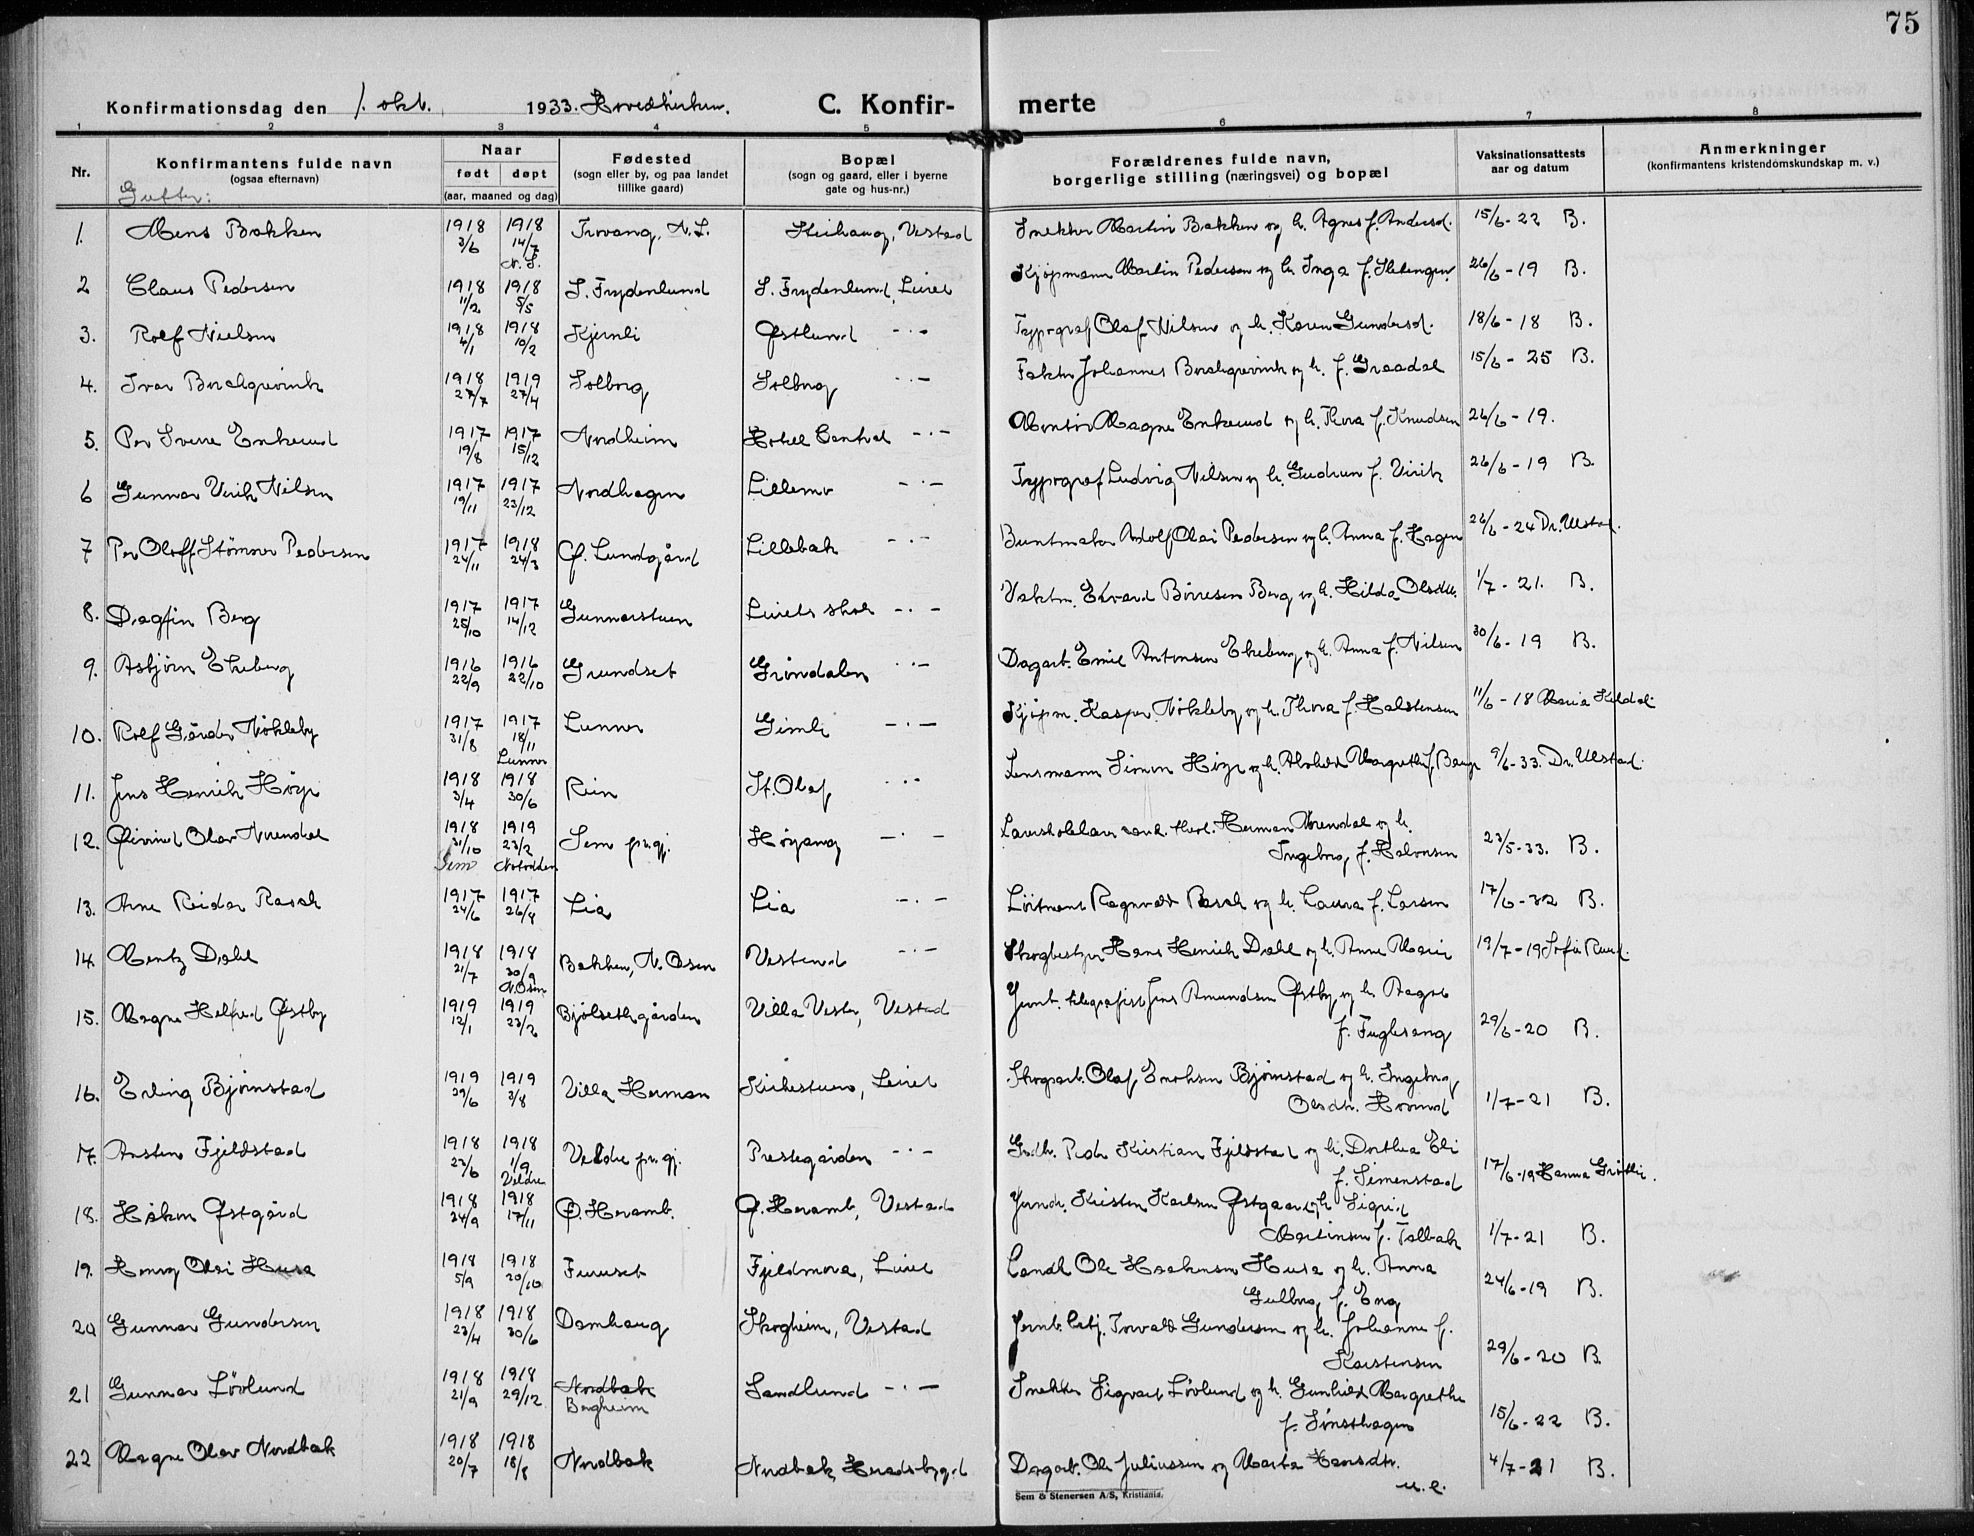 75
Konfirmationsdag den 1. okt. 1933. Hovedkirken. C. Konfir- merte
1 2 3 4 5 6 7 8
Nr. Konfirmantens fulde navn (ogsaa efternavn) Naar født døpt (aar, maaned og dag) Fødested (sogn eller by, og paa landet tillike gaard) Bopæl (sogn og gaard, eller i byerne gate og hus-nr.) Forældrenes fulde navn, borgerlige stilling (næringsvei) og bopæl Vaksinationsattests aar og datum Anmerkninger (konfirmantens kristendomskundskap m. v.)
Gutter:
1. Mons Bakken 1918 3/6 1918 14/7 N. L. N. L. Vestad Snekker Martin Bakken og h. Agnes f. Andersd. 15/6-22 B.
2 Claus Pedersen 1918 11/2 1918 5/5 S. Frydenlund S. Frydenlund, Leiret Kjøpmann Martin Pedersen og h. Inga f. 26/6-19 B.
3. Rolf Nielsen 1918 4/1 1918 10/2 Kjernli Østlund -"- Typograf Olaf Nilsen og h. Karen Gundersd. 18/6-18 B.
4. Ivar Borchgrevink 1918 27/7 1919 27/4 Solborg Solborg -"- Faktor Johannes Borchgrevink og h. f. Graadal 15/6-25 B.
5. Per Sverre Enkerud 1917 19/8 1917 15/12 Nordheim Hotel Central -"- Montør Magne Enkerud og h. Thora f. Knudsen 26/6-19.
6 Gunnar Nilsen 1917 19/11 1917 23/12 Nordhagen Lillemo -"- Typograf Ludvig Nilsen og h. Gudrun f. 26/6-19 B.
7 Per Oloff Pedersen 1917 24/11 1918 24/3 Ø. Lundgård Lillebæk -"- Buntmaker Adolf Olai Pedersen og h. Anna f. Hagen 26/6-24 Dr. Ulstad.
8. Dagfin Berg 1917 25/10 1917 14/12 Gunnarstuen Leirets skole -"- Vaktm. Edvard Børresen Berg og h. Hilda Olsdtr. 1/7-21. B.
9. Asbjørn Ekeberg 1916 22/9 1916 22/10 Grundset Grindalen -"- Dagarb. Emil Antonsen Ekeberg og h. Anna f. Nilsen 30/6-19 B.
10. Rolf Nøkleby 1917 31/8 1917 18/11 Lunner Lunner Gimle -"- Kjøpm. Kasper Nøkleby og h. Thora f. Halstensen 11/6-18 Maria
11. Jens Henrik Høye 1918 3/4 1918 30/6 Rein St. Olaf -"- Lensmann Simen Høye og h. Margrethe f. 9/6-33. Dr. Ulstad.
12. Øivind Olav 1918 31/10 Sem 1919 23/2 Notodden Sem pr.gj. Høyang -"- Herman og h. Ingeborg f. Halvorsen 23/5-33. B.
13. Arne Reidar Rasch 1917 24/6 1917 26/8 Lia Lia -"- Løitnant Ragnvald Rasch og h. Laura f. Larsen 17/6-32 B.
14. Bentz Dahl 1918 21/7 1918 30/9 N. Osen Bakken, N. Osen Vestend -"- Skogbestyr. Hans Henrik Dahl og h. Anne Marie 19/7-19 Sofie Ruud.
15. Magne Østby 1919 12/1 1919 23/2 Bjølsethgården Villa Vester, Vestad Jernb. telegrafist Jens Amundsen Østby og h. Aagot f. Fuglesang 29/6-20 B.
16. Erling Bjørnstad 1919 29/6 1919 3/8 Villa Herman Kirkestuen, Leiret Skogsarb. Olaf Enoksen Bjørnstad og h. Ingeborg Olsdtr. 1/7-21 B.
17. Austen Fjeldstad 1918 23/6 1918 1/9 Veldre Veldre pr.gj. Prestegården -"- Gdbr. Peder Kristian Fjeldstad og h. Dorthea Eli f. Simenstad 17/6-19 Hanna
18. Håkon Østgård 1918 24/9 1918 17/11 Ø. Heramb. Ø. Heramb, Vestad Kristen Karlsen Østgaard og h. Sigrid Martinsen f. Talbak 1/7-21 B.
19. Henry Olai Husa 1918 5/9 1918 20/10 Furuset Fjeldmora, Leiret Ole Haakensen Husa og h. Anna Gulborg f. Eng 24/6-19 B.
20 Gunnar Gundersen 1918 23/4 1918 30/6 Damhaug Skogheim, Vestad Jernb. betj. Torvald Gundersen og h. Johanne f. Karstensen 29/6-20 B
21 Gunnar Løvlund 1918 21/9 1918 29/12 Nordbæk Bergheim Sandlund -"- Snekker Sigvart Løvlund og h. Gunhild Margrethe f. Sønsthagen 15/6-22 B.
22 Magne Olav Nordbæk 1918 20/7 1918 18/8 Nordbæk Nordbæk, Heradsbygd Dagarb. Ole Juliussen og Marta Hansdtr. u. e. 4/7-21 B.
Sem & Stenersen A/S, Kristiania.